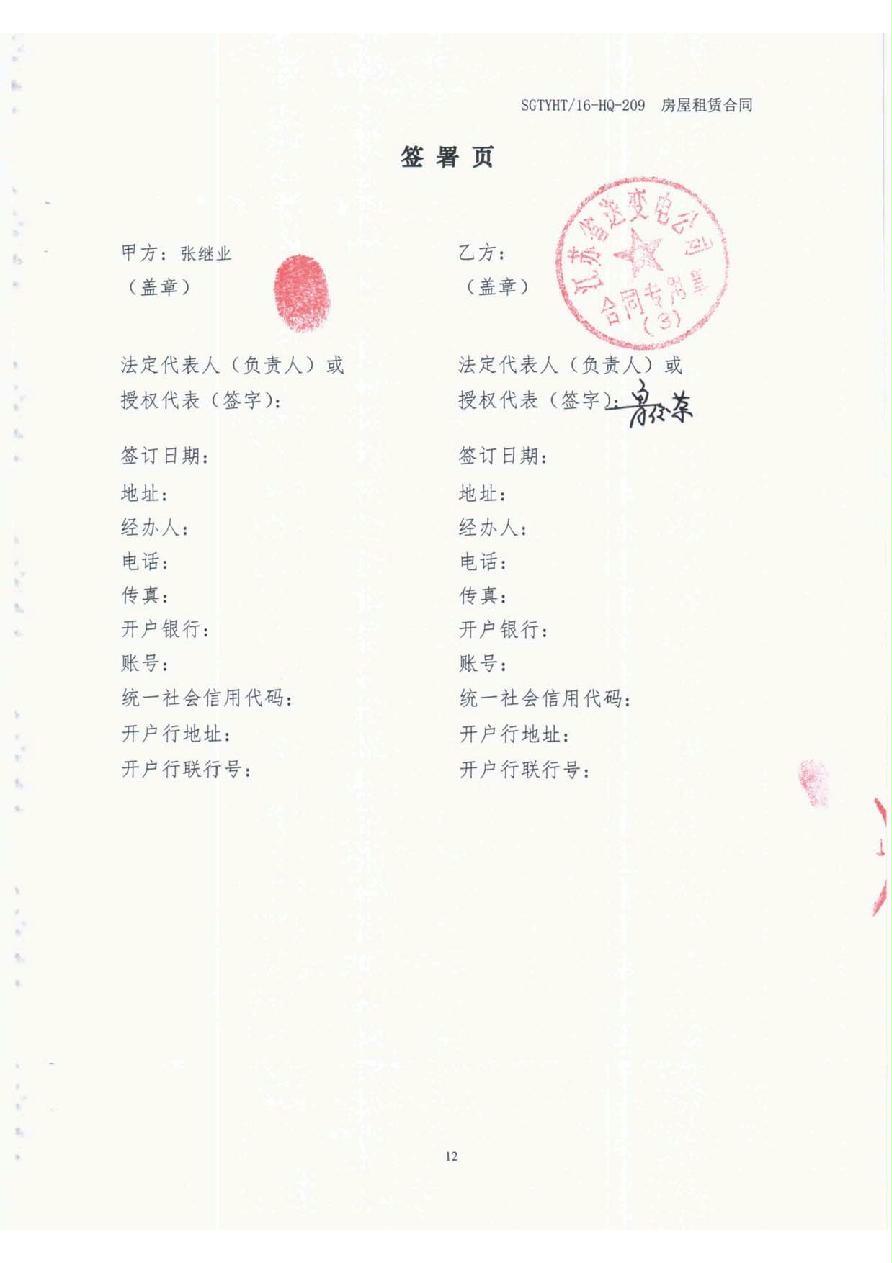 SGTYHT/16-HQ-209 房屋租赁合同
签署页
甲方：张继业
（盖章）
法定代表人（负责人）或
授权代表（签字）：
签订日期：
地址：
经办人：
电话：
传真：
开户银行：
账号：
统一社会信用代码：
开户行地址：
开户行联行号：
乙方：
（盖章）
江苏省送变电公司
合同专用章
(3)
法定代表人（负责人）或
授权代表（签字）：
签订日期：
地址：
经办人：
电话：
传真：
开户银行：
账号：
统一社会信用代码：
开户行地址：
开户行联行号：
12